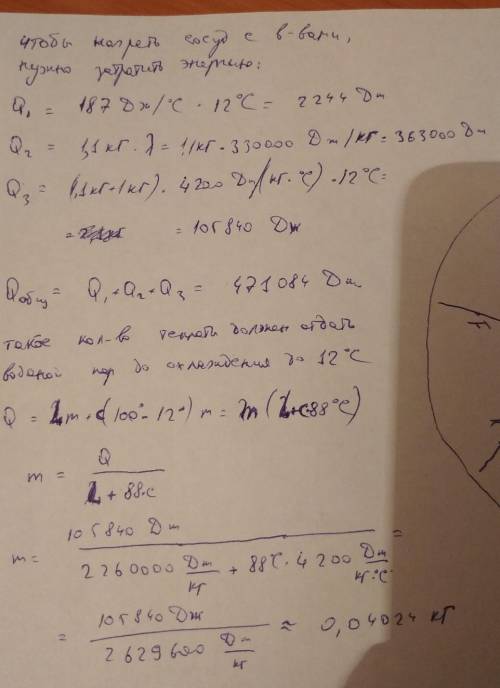 чтобы нагреть сосуд с в-вами,
нужно затратить энергию:
Q₁ = 187 Дж/°C · 12°C = 2244 Дж
Q₂ = 1,1 кг · λ = 1,1 кг · 330000 Дж/кг = 363000 Дж
Q₃ = (1,1 кг + 1 кг) · 4200 Дж/(кг · °C) · 12°C =
= = 105840 Дж
Qобщ = Q₁ + Q₂ + Q₃ = 471084 Дж
такое кол-во теплоты должен отдать
водяной пар до охлаждения до 12°C
Q = Lm + c(100° - 12°) m = m (L + c·88°C)
m = Q / (L + 88·c)
m = 105840 Дж / (2260000 Дж/кг + 88°C · 4200 Дж/кг·°C) =
= 105840 Дж / 2629600 Дж/кг ≈ 0,04024 кг